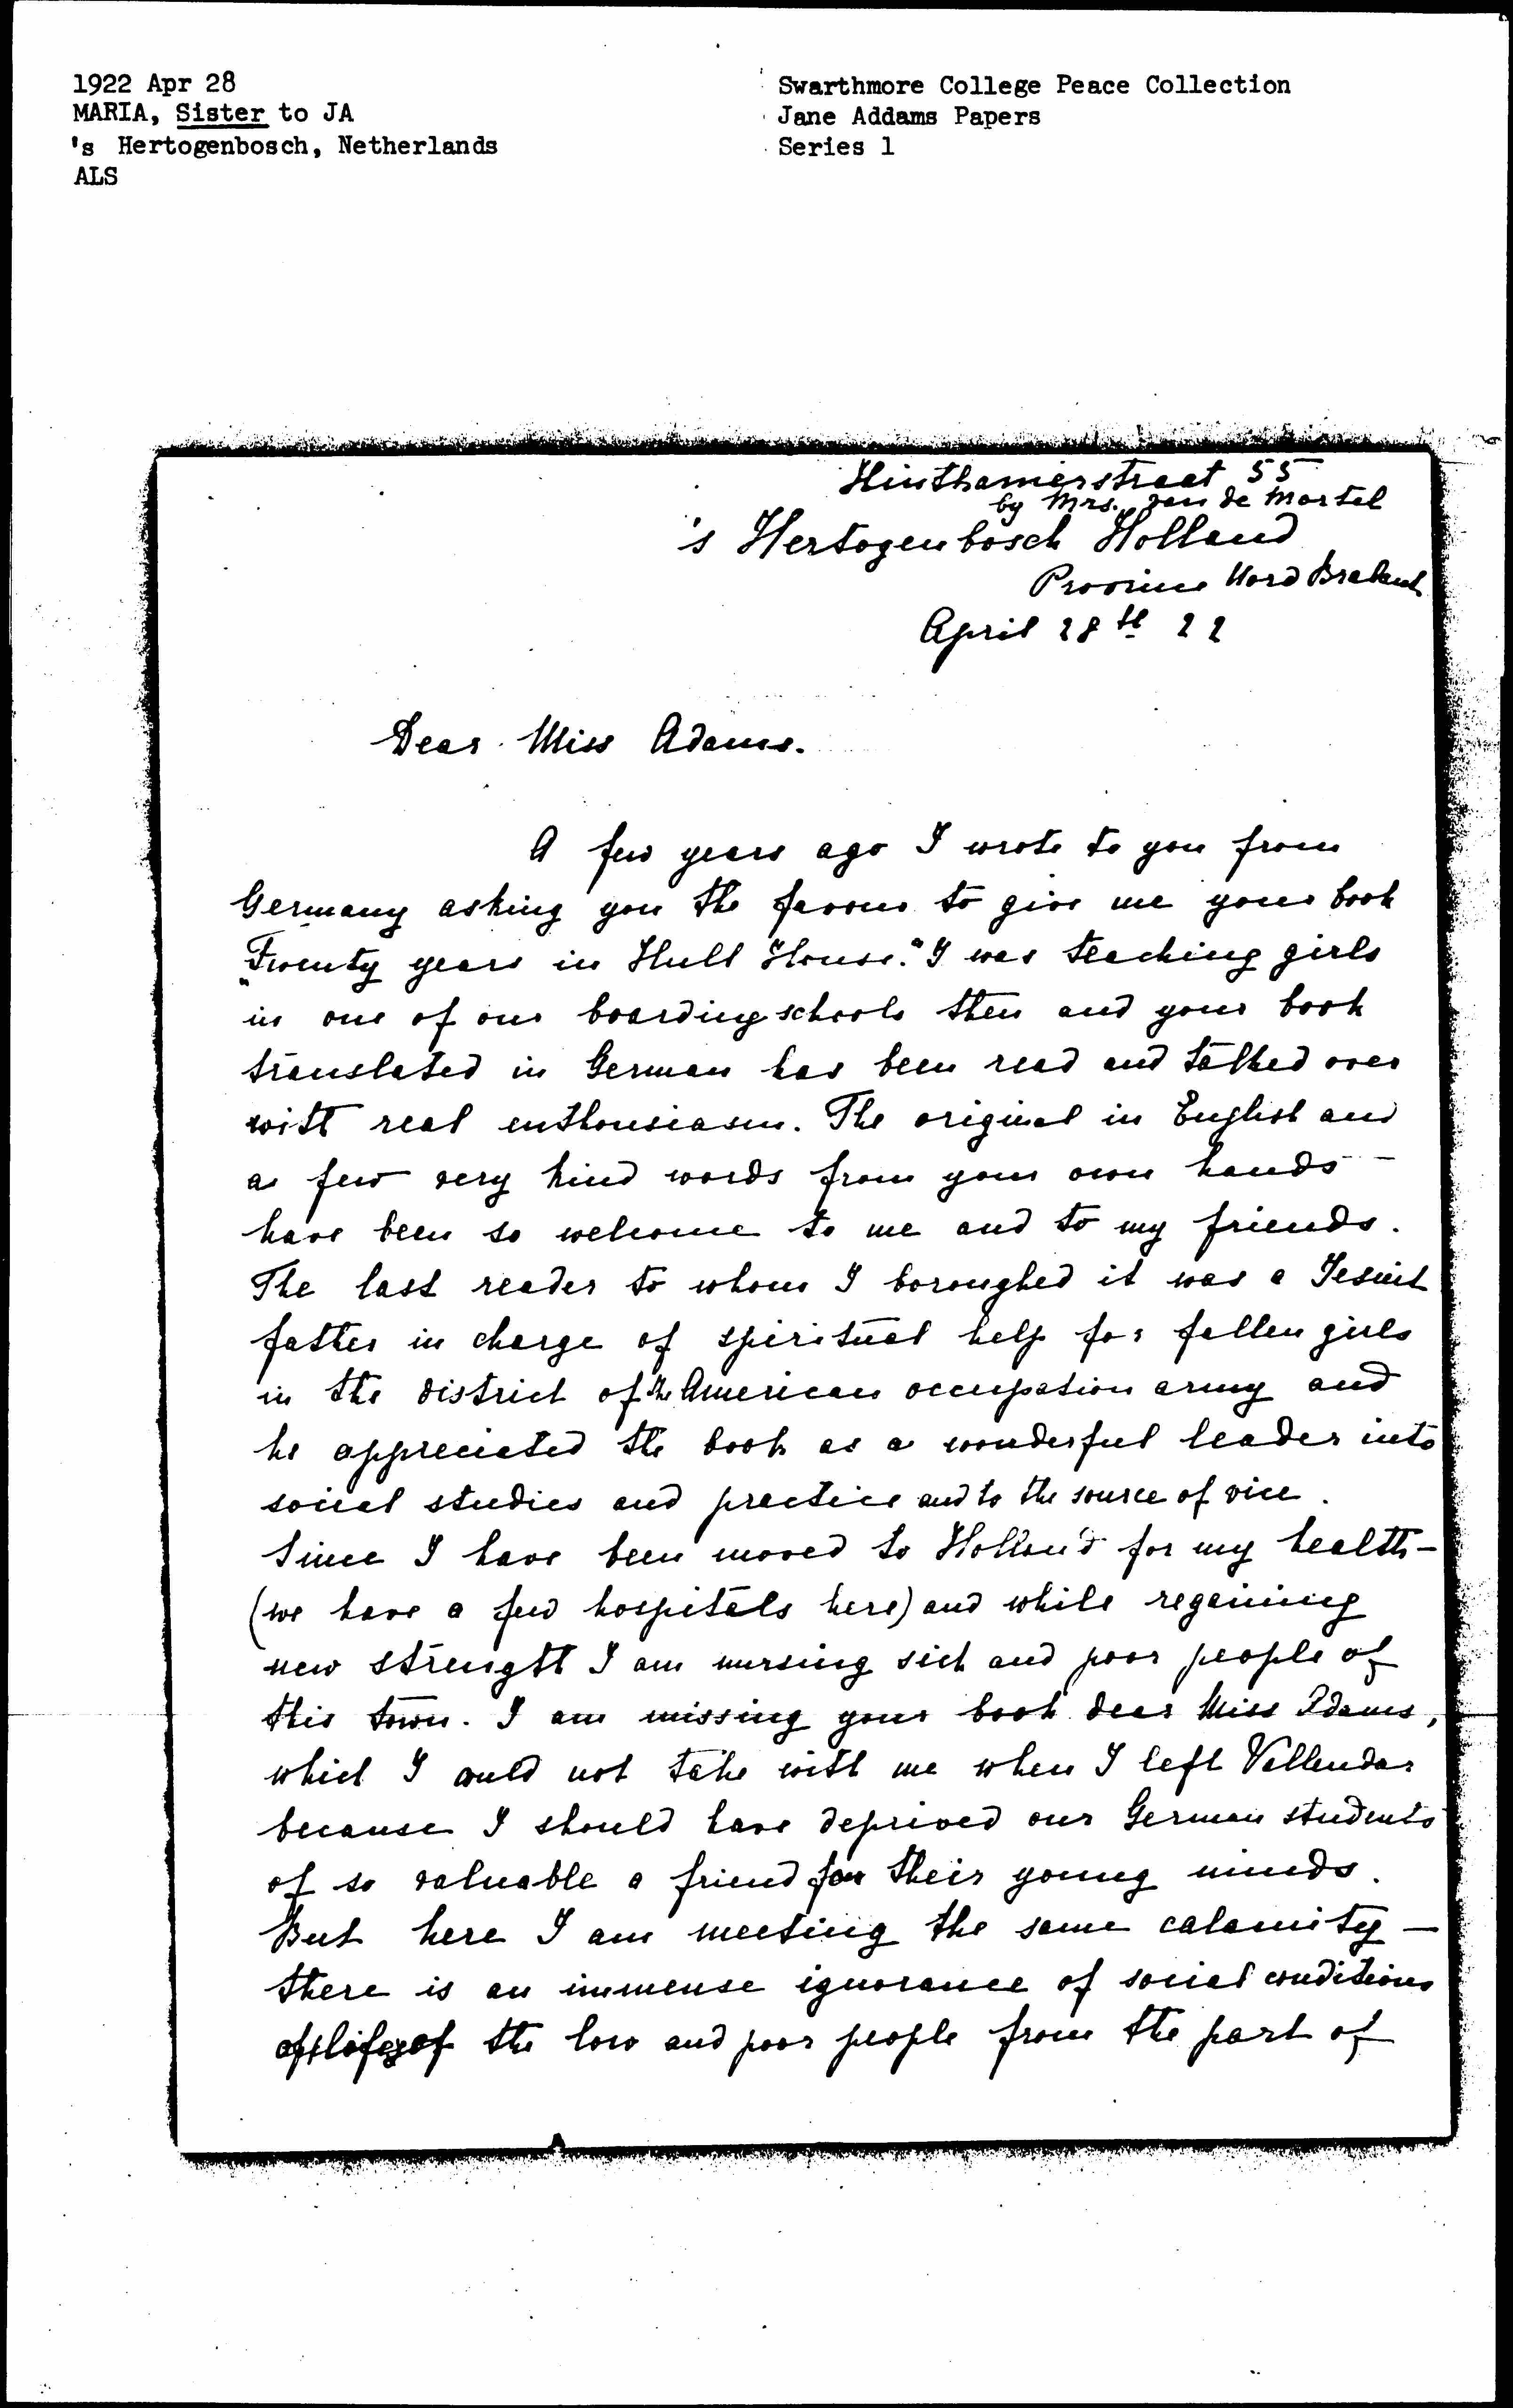 1922 Apr 28
MARIA, Sister to JA
's Hertogenbosch, Netherlands
ALS
Swarthmore College Peace Collection
Jane Addams Papers
Series 1
Hinthamerstraat 55
by Mrs. van de Mortel
's Hertogenbosch Holland
Province Nord Brabant
April 28th 22
Dear Miss Adams.
A few years ago I wrote to you from
Germany asking you the favour to give me your book
„Twenty years in Hull House." I was teaching girls
in one of our boardingschools then and your book
translated in German has been read and talked over
with real enthousiasm. The original in English and
a few very kind words from your own hands
have been so welcome to me and to my friends.
The last reader to whom I boroughed it was a Jesuit
father in charge of spiritual help for fallen girls
in the district of the American occupation army and
he appreciated the book as a wonderful leader into
social studies and practice and to the source of vice.
Since I have been moved to Holland for my health –
(we have a few hospitals here) and while regaining
new strength I am nursing sick and poor people of
this town. I am missing your book dear Miss Adams,
which I could not take with me when I left Vallendar
because I should have deprived our German students
of so valuable a friend for their young minds.
But here I am meeting the same calamity –
there is an immense ignorance of social conditions
of life of the low and poor people from the part of